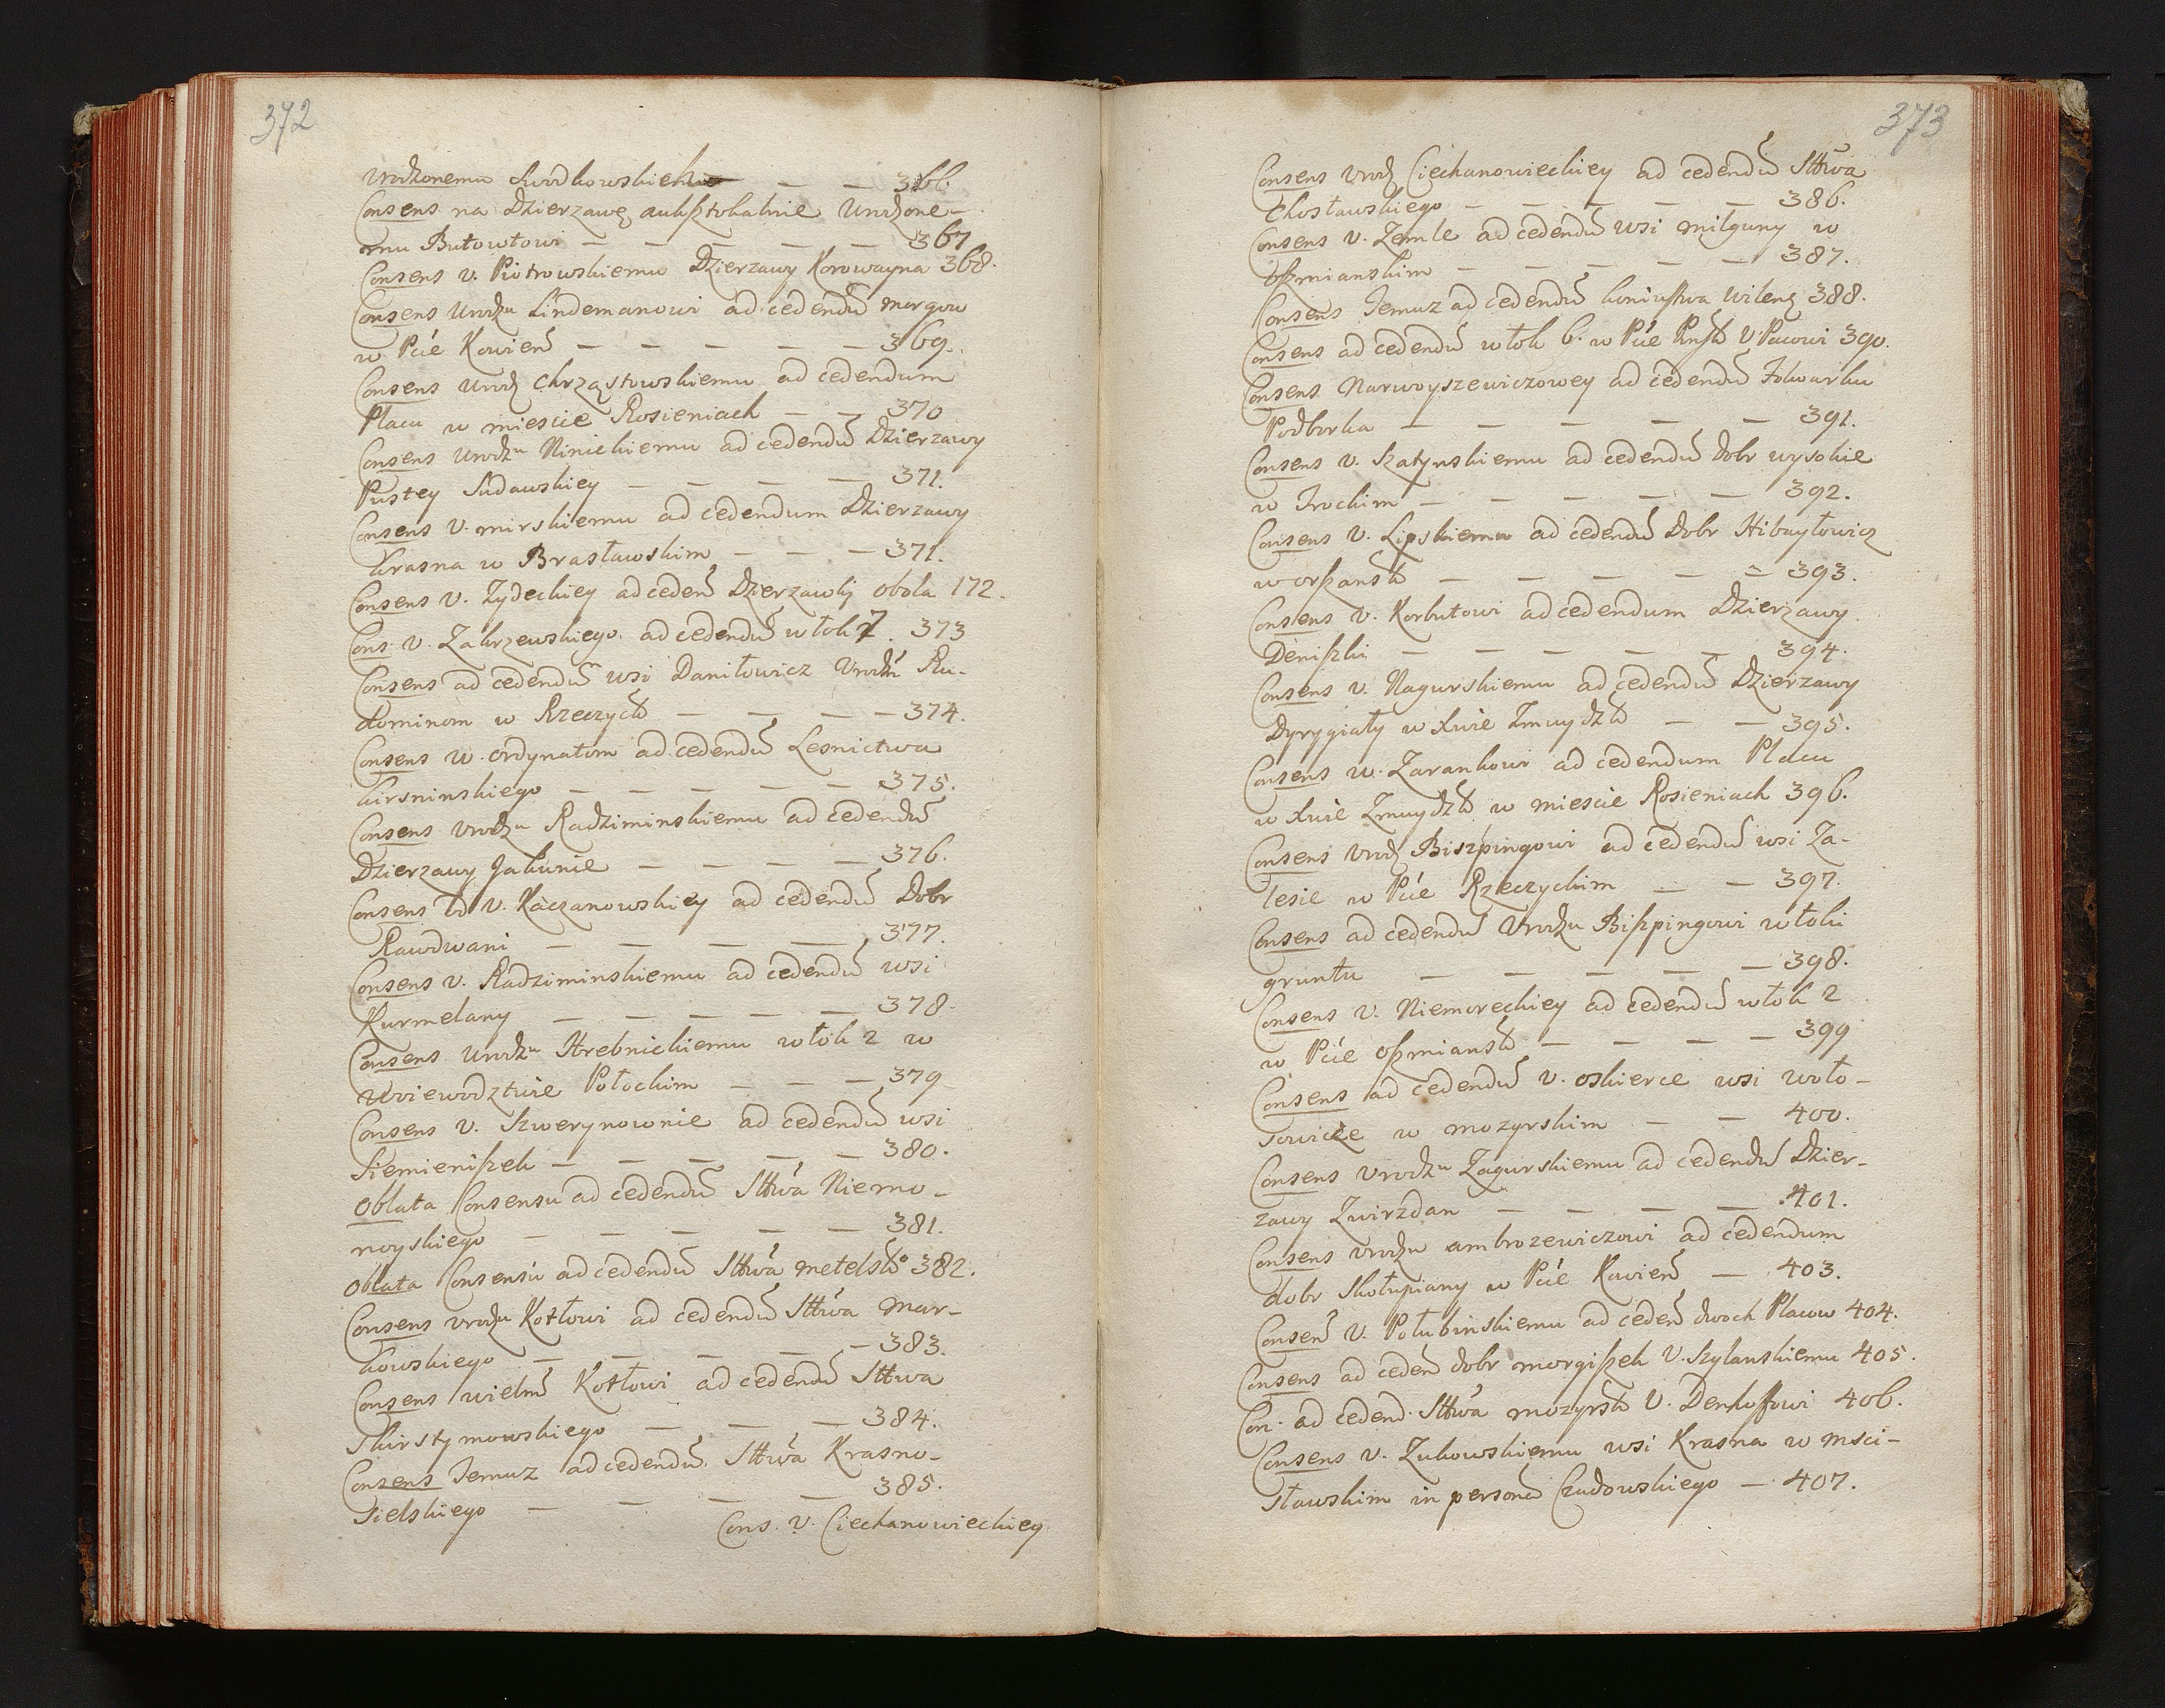 372
Urodzonemu Swidkowskiemu — — 366.
Consens na Dzierzawę aukßtokalnie Urodzone-
mu Butowtowi — — — — — 367
Consens v. Piotrowskiemu Dzierzawy Korowayna 368.
Consens Urodzu Lindemanowi ad cedendū morgow
w Pcie Kowień — — — — — 369.
Consens Urodz Chrząstowskiemu ad cedendum
Placu w miescie Rosieniach — — 370
Consens Urodzu Ninickiemu ad cedendū Dzierzawy
Pustey Sudawskiey — — — — 371.
Consens V. mirskiemu ad cedendum Dzierzawy
Krasna w Brasławskim — — — 371.
Consens V. Zydeckiey ad ceden Dzierzawy obola 172.
Cons. v. Zakrzewskiego ad cedendū włok 7. 373
Consens ad cedendū wsi Daniłowicz Urodzu Ru-
dominom w Rzeczyck — — — — 374.
Consens W. Ordynatom ad cedendū Lesnictwa
Kirsninskiego — — — — — 375.
Consens Urodzu Radziminskiemu ad cedendū
Dzierzawy Jakunie — — — — 376.
Consens v. Kaczanowskiey ad cedendū Dobr
Rawdwani — — — — 377.
Consens v. Radziminskiemu ad cedendū wsi
Kurmelany — — — — — 378.
Consens Urodzu Hrebnickiemu włok 2 w
Woiewodztwie Połockim — — — 379
Consens v. Szwerynownie ad cedendū wsi
Siemienißek — — — — — 380.
Oblata Consensu ad cedendū Sttwa Niemo-
noyskiego — — — — — 381.
Oblata Consensu ad cedendū Sttwa metelsko 382.
Consens Urodzu Kotłowi ad cedendū Sttwa Mar-
kowskiego — — — — — 383.
Consens wielm Kotłowi ad cedendū Sttwa
Skirstymowskiego — — — 384.
Consens Temuz ad cedendū Sttwa Krasno-
sielskiego — — — — 385.
Cons. v. Ciechanowieckiey
373
Consens Urodz Ciechanowieckiey ad cedendū Sttwa
Chosławskiego — — — — — 386.
Consens v. Zemle ad cedendū wsi milguny w
oßmianskim — — — — — 387.
Consens Temuz ad cedendū koniustwa Wileng 388.
Consens ad cedendū włok 6. w Pcie Pinsk V. Pacowi 390.
Consens Narwoyszewiczowey ad cedendū Folwarku
Podborka — — — — — 391.
Consens v. Szatynskiemu ad cedendū Dobr wysokie
w Trockim — — — — — 392.
Consens v. Lipskiemu ad cedendū Dobr Hibayłowicz
w orßansk — — — — — 393.
Consens v. Korbutowi ad cedendum Dzierzawy
Denißki — — — — — 394.
Consens v. Nagurskiemu ad cedendū Dzierzawy
Dyrygiały w Xwie Zmuydzk — — 395.
Consens w. Zarankowi ad cedendum Placu
w Xwie Zmuydzk w miescie Rosieniach 396.
Consens Urodz Biszpingowi ad cedendū wsi Za-
lesie w Pcie Rzeczyckim — — 397.
Consens ad cedendū Urodzu Bißpingowi włoki
gruntu — — — — — 398.
Consens v. Niemereckiey ad cedendū włok 2
w Pcie oßmiansk — — — — 399
Consens ad cedendū v. oskierce wsi woło-
sowicze w mozyrskim — — 400.
Consens Urodzu Zagurskiemu ad cedendū Dzier-
zawy Zwirzdan — — — — 401.
Consens Urodzu ambrozewiczowi ad cedendum
dobr Skołupiany w Pcie Kowień — 403.
Consens v. Połubinskiemu ad ceden dwoch Placow 404.
Consens ad ceden dobr morgißek V. Szylanskiemu 405.
Con. ad cedend. Sttwa mozyrsk V. Denhoffowi 406.
Consens v. Zukowskiemu wsi Krasna w msci-
sławskim in personā Czudowskiego — 407.